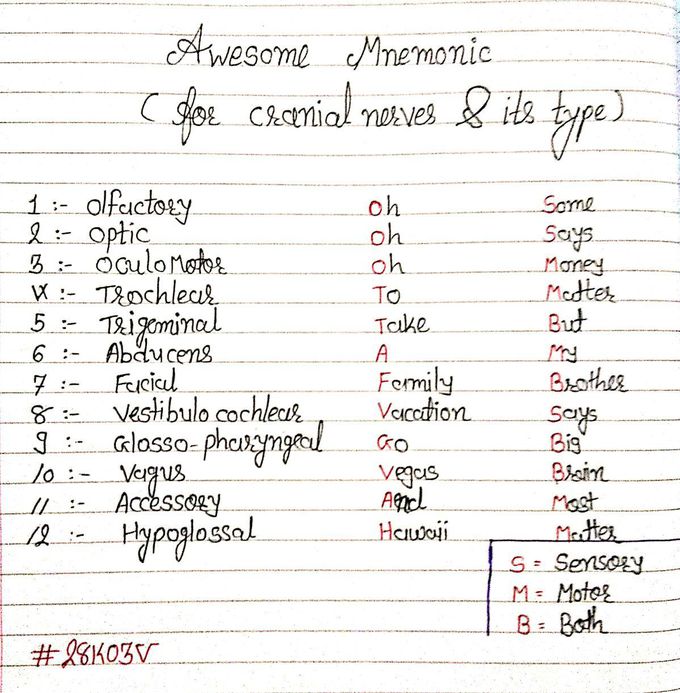 Awesome Mnemonic
(for cranial nerves & its type)
1 :- Olfactory Oh Some
2 :- Optic Oh Says
3 :- OculoMotor Oh Money
:- Trochlear To Matter
5 :- Trigeminal Take But
6 :- Abducens A My
7 :- Facial Family Brother
8 :- Vestibulo cochlear Vacation Says
9 :- Glosso-pharyngeal Go Big
10 :- Vagus Vegas Brain
11 :- Accessory And Most
12 :- Hypoglossal Hawaii Matter
S = Sensory
M = Motor
B = Both
#28K03V